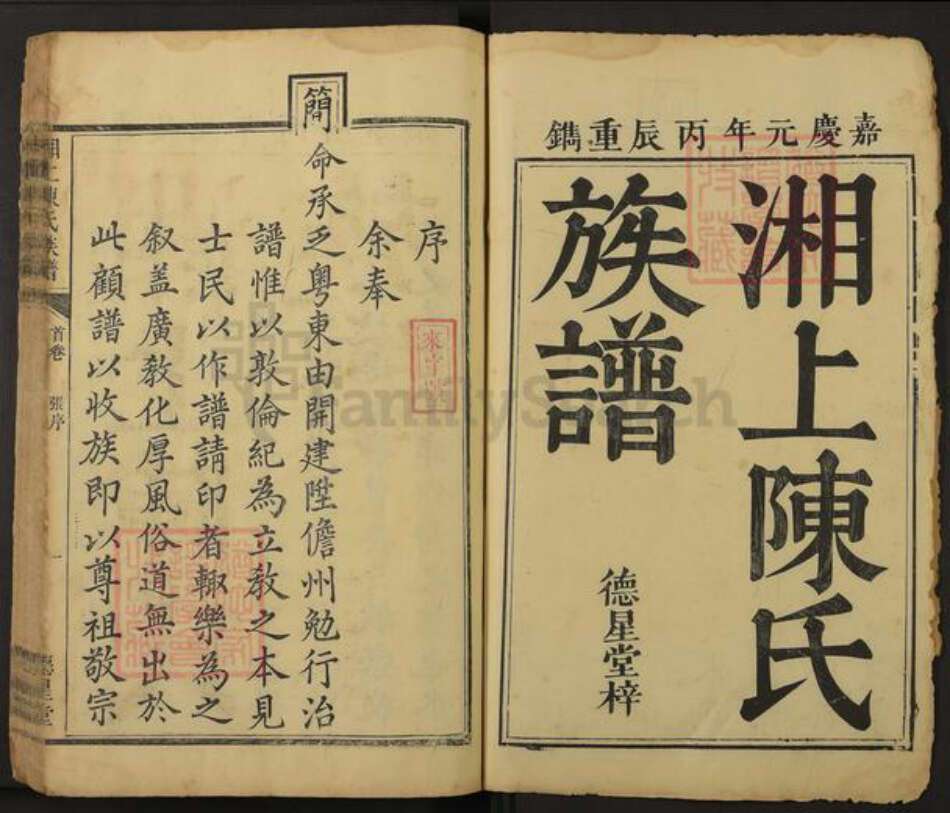 嘉慶元年丙辰重鐫
湘上陳氏
族譜
德星堂梓
序
余奉
簡命承乏粵東由開建陞儋州勉行治
譜惟以敦倫紀為立教之本見
士民以作譜請印者輙樂為之
叙盖廣教化厚風俗道無出於
此顧譜以收族即以尊祖敬宗
湘上陳氏族譜
首卷
張序
一
德星堂
FamilySearch